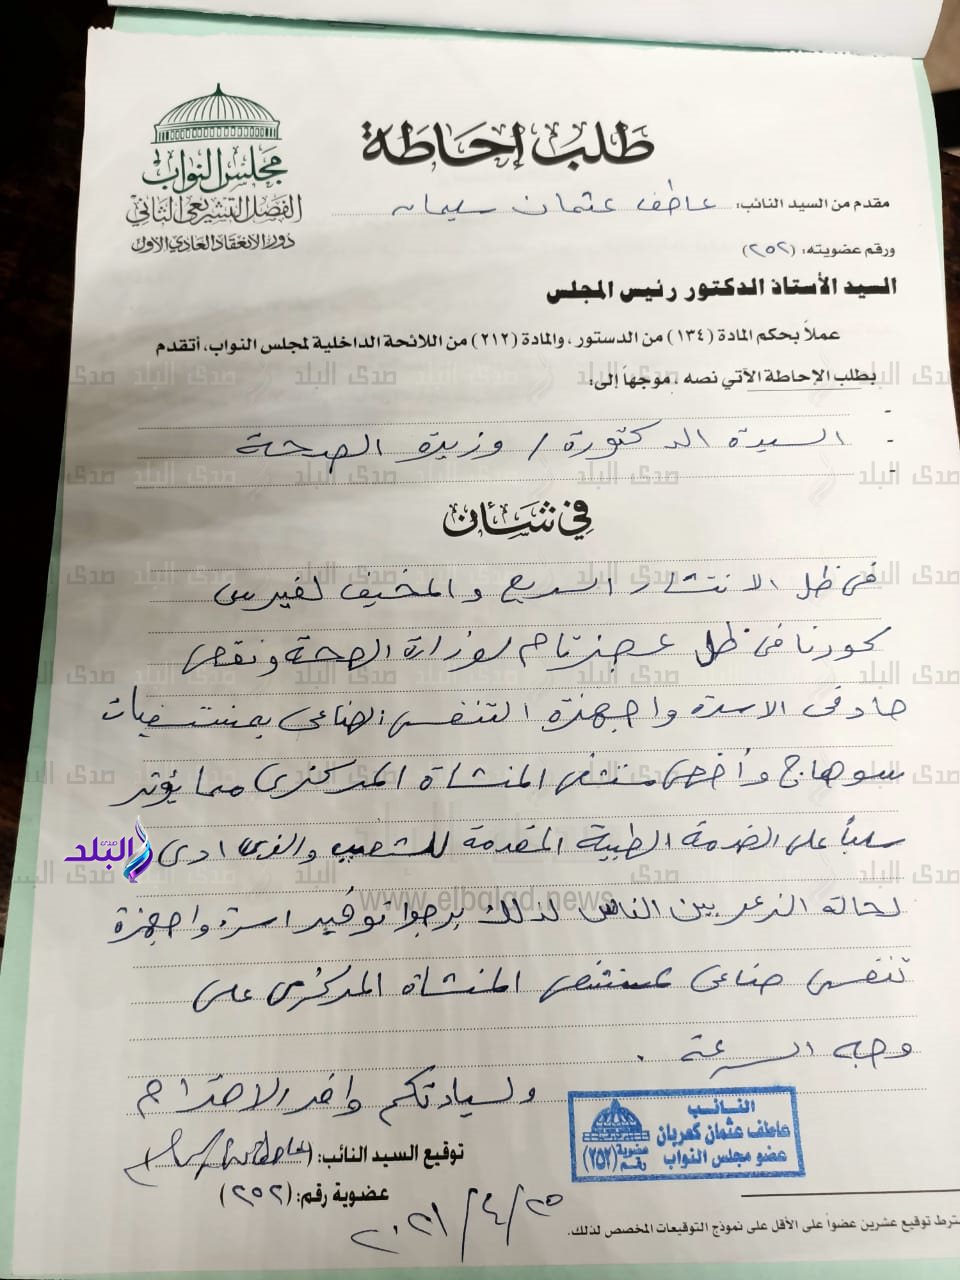 مجلس النواب
الفصل التشريعي الثاني
دور الانعقاد العادي الأول
طلب إحاطة
مقدم من السيد النائب: عاطف عثمان سليمان
ورقم عضويته: (٢٥٢)
السيد الأستاذ الدكتور رئيس المجلس
عملاً بحكم المادة (١٣٤) من الدستور، والمادة (٢١٢) من اللائحة الداخلية لمجلس النواب، أتقدم
بطلب الإحاطة الآتي نصه، موجهاً إلى:
-
- السيدة الدكتورة / وزيرة الصحة
-
في شأن
فى ظل الانتشار السريع والمخيف لفيرس
كورنا فى ظل عجز تام لوزارة الصحة ونقص
حاد فى الاسرة واجهزة التنفس الصناعى بمستشفيات
سوهاج وأخص مستشفى المنشاة المركزى مما يؤثر
سلباً على الخدمة الطبية المقدمة للشعب والذى ادى
لحالة الذعر بين الناس لذلك برجوا توفير اسرة واجهزة
تنفس صناعى لمستشفى المنشاة المركزى على
وجه السرعة .
ولسيادتكم وافر الاحترام
النائب
عاطف عثمان كعربان
عضو مجلس النواب
عضوية رقم (٢٥٢)
توقيع السيد النائب: (
عضوية رقم: (٢٥٢)
٢٠٢١/٤/٢٥
شترط توقيع عشرين عضواً على الأقل على نموذج التوقيعات المخصص لذلك.
صدى البلد
www.elbalad.news